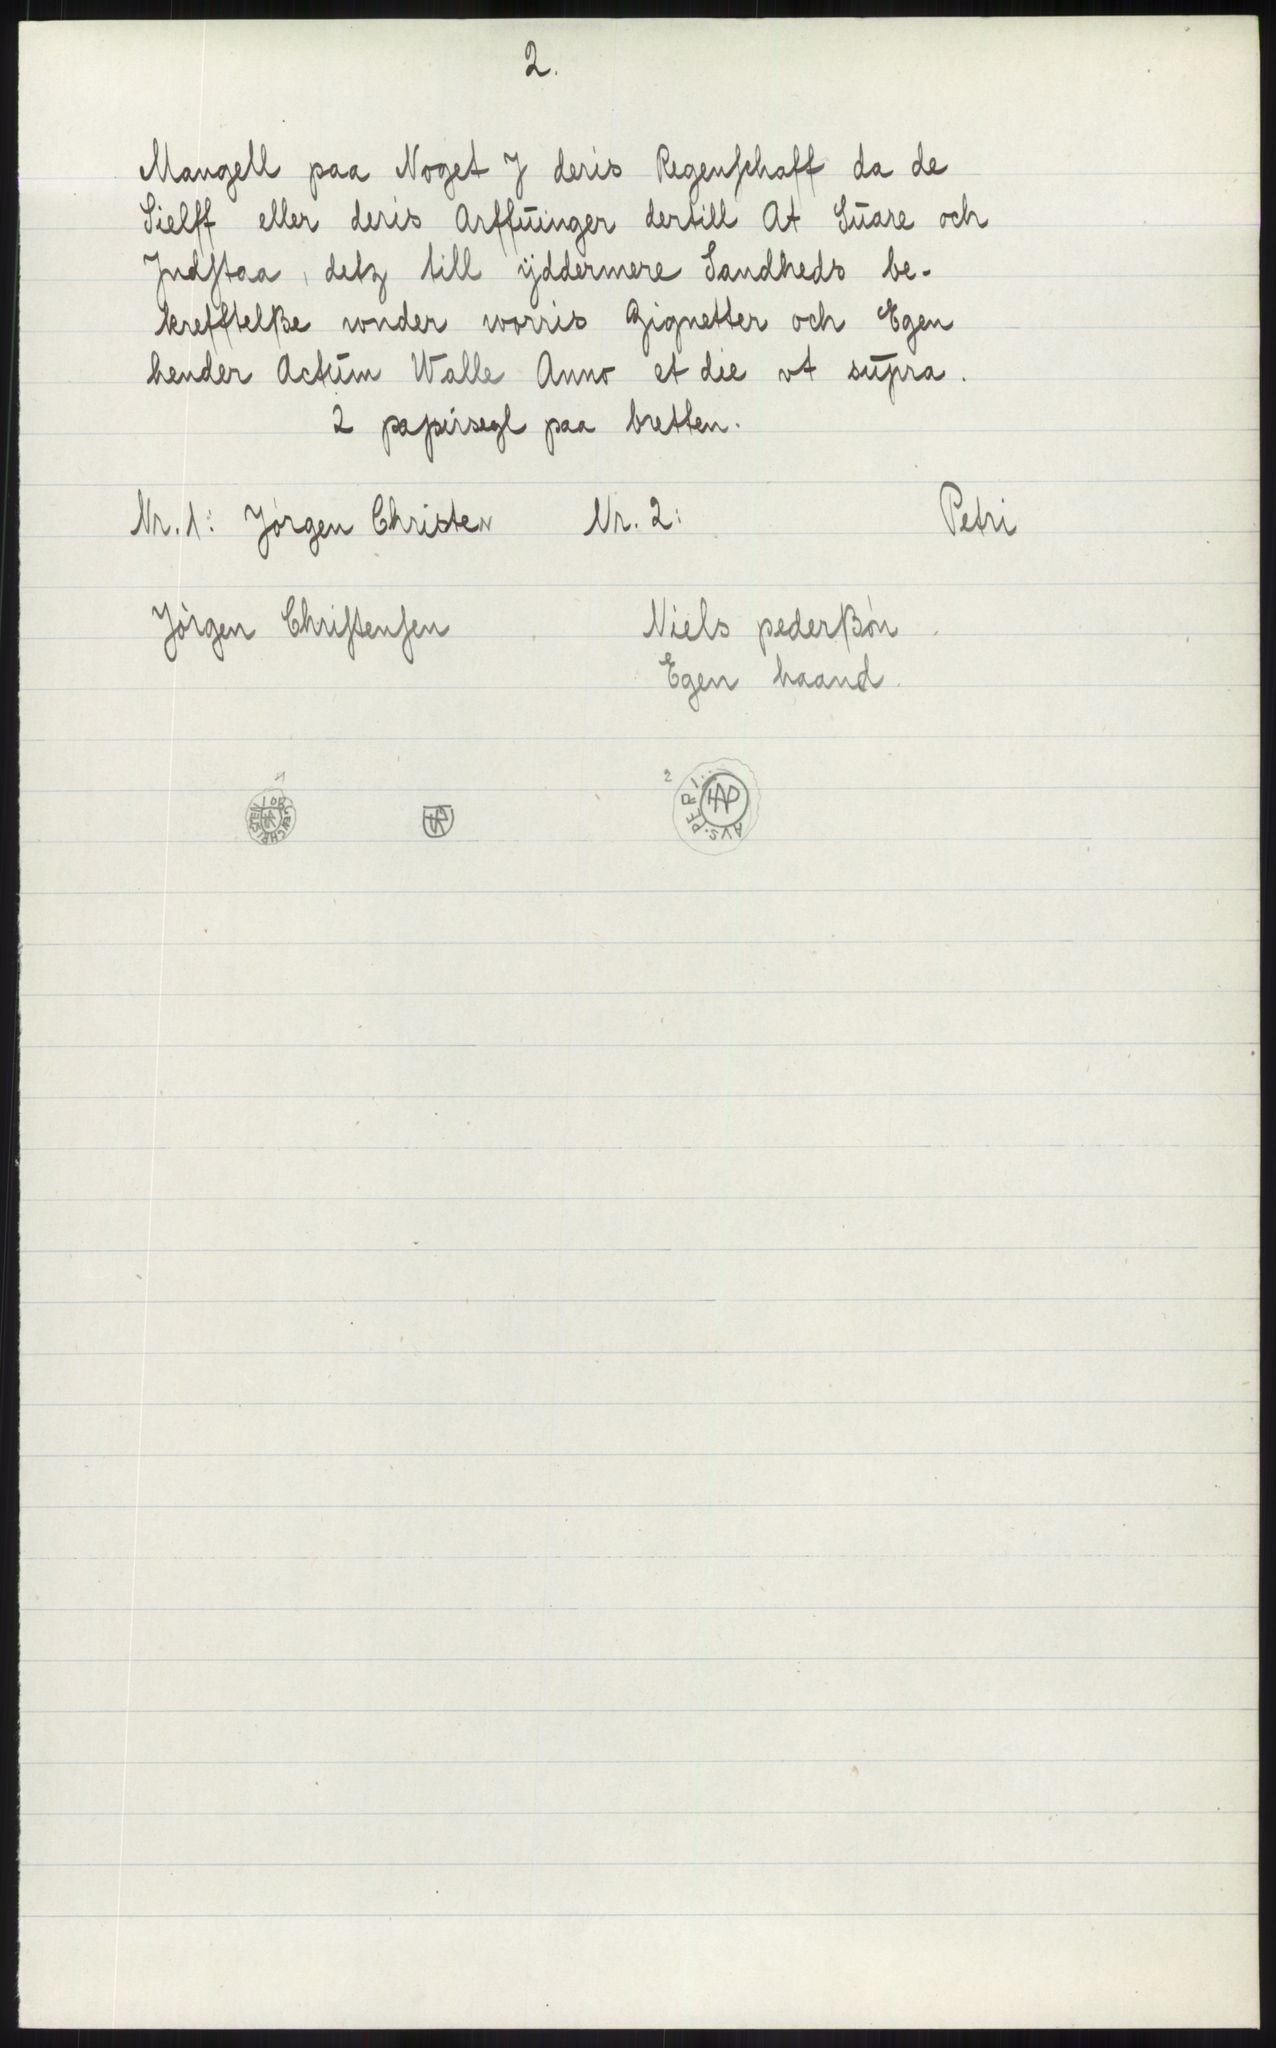 2.
Mangell paa Noget J deris Regenſchaff da de
Sielff eller deris Arffŭinger dertill At Sŭare och
Jndſtaa, detz till ÿddermere Sandheds be-
krefftelße vnder worris Zignetter och Egen
hender Actŭm Walle Anno et die vt sŭpra.
2 papirsegl paa bretten.
Nr. 1: Jørgen Christen Nr. 2: Petri
Jørgen Chriſtenſen Niels pederßøn
Egen haand
1 2
IORGEN CHRISTEN
AVS. PE RI..